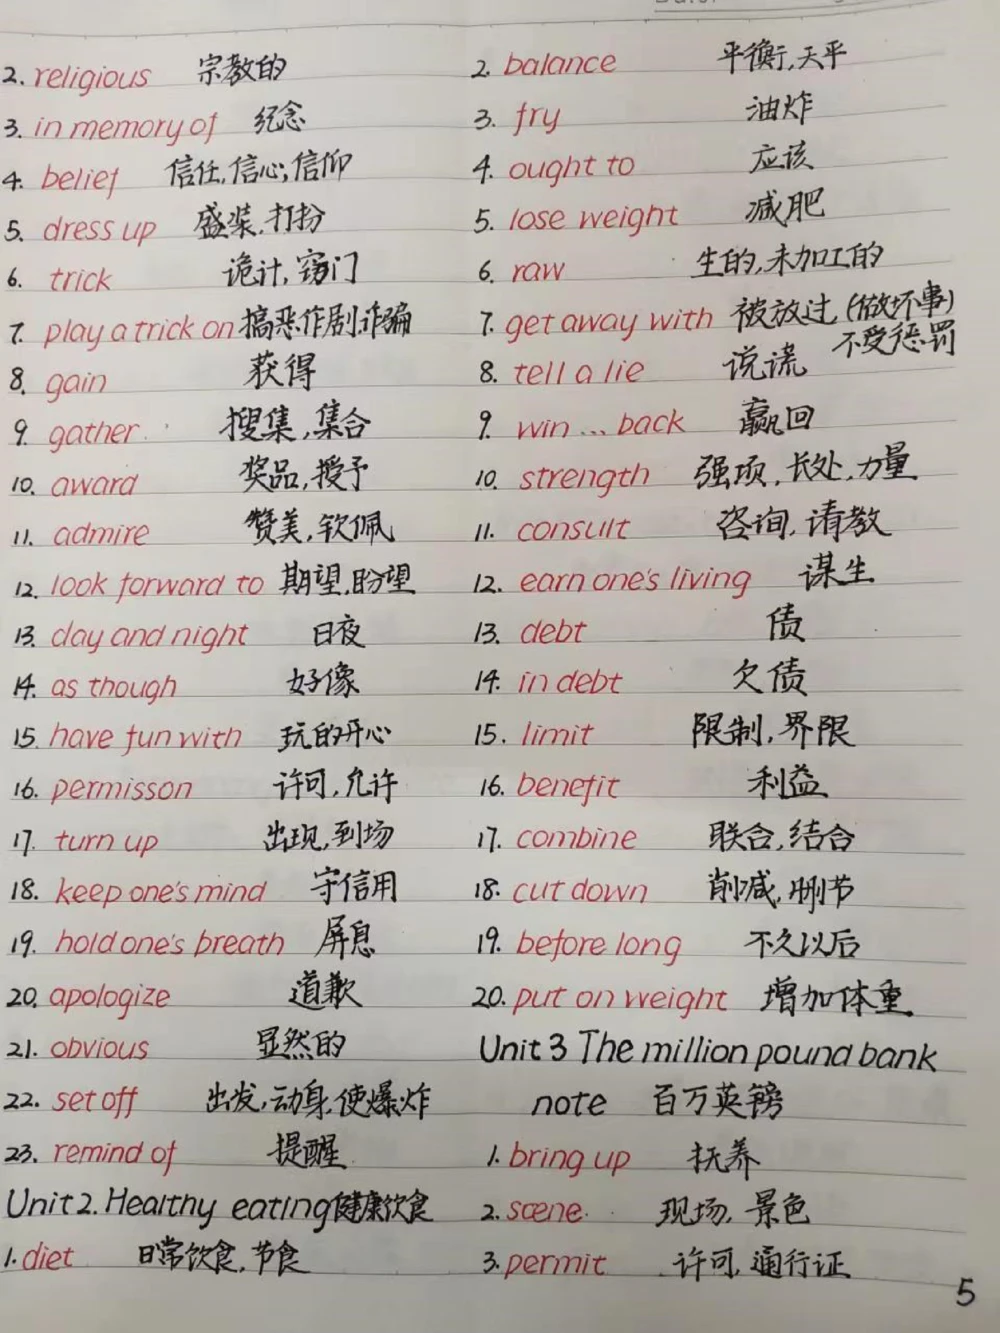 2. religious 宗教的
3. in memory of 纪念
4. belief 信任,信心,信仰
5. dress up 盛装,打扮
6. trick 诡计,窍门
7. play a trick on 搞恶作剧,诈骗
8. gain 获得
9. gather 搜集,集合
10. award 奖品,授予
11. admire 赞美,钦佩
12. look forward to 期望,盼望
13. day and night 日夜
14. as though 好像
15. have fun with 玩的开心
16. permisson 许可,允许
17. turn up 出现,到场
18. keep one's mind 守信用
19. hold one's breath 屏息
20. apologize 道歉
21. obvious 显然的
22. set off 出发,动身,使爆炸
23. remind of 提醒
Unit 2. Healthy eating 健康饮食
1. diet 日常饮食,节食
2. balance 平衡,天平
3. fry 油炸
4. ought to 应该
5. lose weight 减肥
6. raw 生的,未加工的
7. get away with 被放过(做坏事)
不受惩罚
8. tell a lie 说谎
9. win ... back 赢回
10. strength 强项,长处,力量
11. consult 咨询,请教
12. earn one's living 谋生
13. debt 债
14. in debt 欠债
15. limit 限制,界限
16. benefit 利益
17. combine 联合,结合
18. cut down 削减,删节
19. before long 不久以后
20. put on weight 增加体重
Unit 3 The million pound bank
note 百万英镑
1. bring up 抚养
2. scene 现场,景色
3. permit 许可,通行证
5